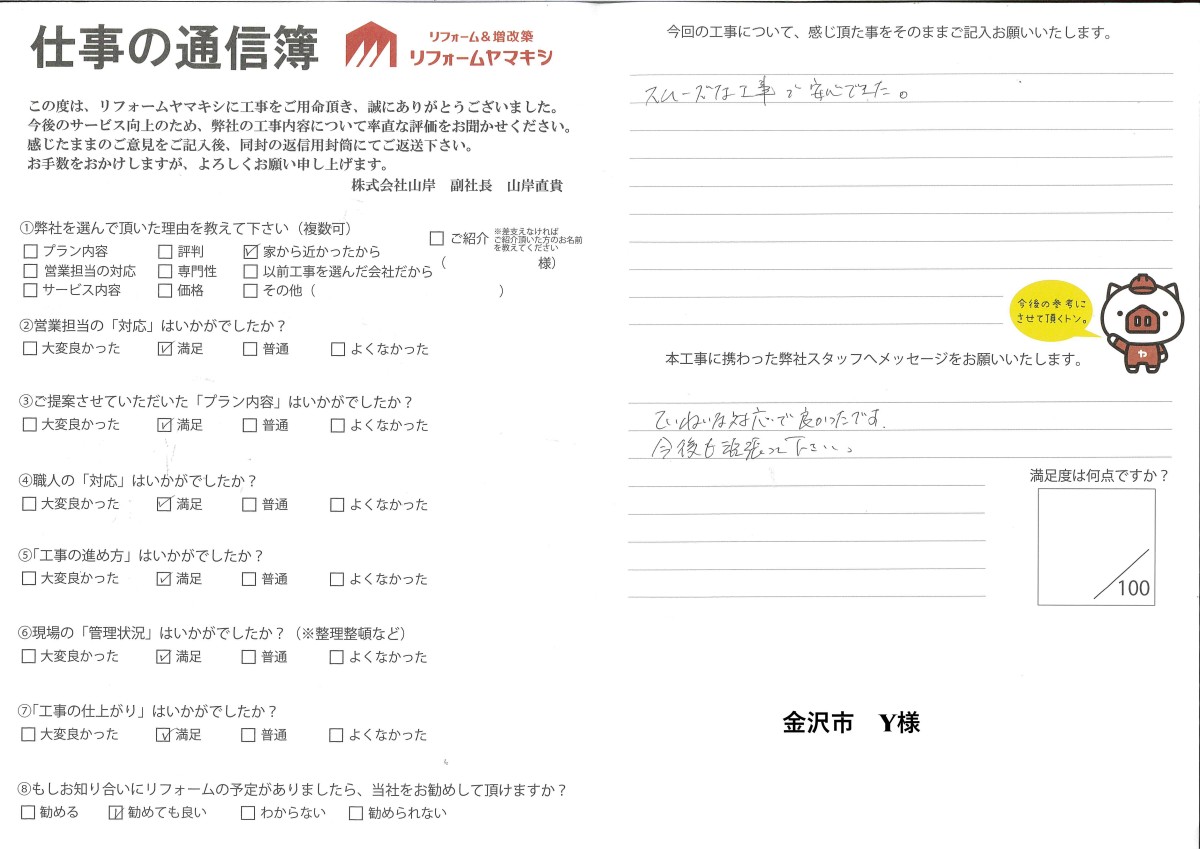 仕事の通信簿
リフォーム&増改築
リフォームヤマキシ
この度は、リフォームヤマキシに工事をご用命頂き、誠にありがとうございました。
今後のサービス向上のため、弊社の工事内容について率直な評価をお聞かせください。
感じたままのご意見をご記入後、同封の返信用封筒にてご返送下さい。
お手数をおかけしますが、よろしくお願い申し上げます。
株式会社山岸 副社長 山岸直貴
①弊社を選んで頂いた理由を教えて下さい（複数可）
□ プラン内容 □ 評判 ☑ 家から近かったから
□ 営業担当の対応 □ 専門性 □ 以前工事を選んだ会社だから
□ サービス内容 □ 価格 □ その他（ ）
□ ご紹介 ※差支えなければ
ご紹介頂いた方のお名前
を教えてください
（ 様）
②営業担当の「対応」はいかがでしたか？
□ 大変良かった ☑ 満足 □ 普通 □ よくなかった
③ご提案させていただいた「プラン内容」はいかがでしたか？
□ 大変良かった ☑ 満足 □ 普通 □ よくなかった
④職人の「対応」はいかがでしたか？
□ 大変良かった ☑ 満足 □ 普通 □ よくなかった
⑤「工事の進め方」はいかがでしたか？
□ 大変良かった ☑ 満足 □ 普通 □ よくなかった
⑥現場の「管理状況」はいかがでしたか？（※整理整頓など）
□ 大変良かった ☑ 満足 □ 普通 □ よくなかった
⑦「工事の仕上がり」はいかがでしたか？
□ 大変良かった ☑ 満足 □ 普通 □ よくなかった
⑧もしお知り合いにリフォームの予定がありましたら、当社をお勧めして頂けますか？
□ 勧める ☑ 勧めても良い □ わからない □ 勧められない
今回の工事について、感じ頂た事をそのままご記入お願いいたします。
スムーズな工事で安心できた。
今後の参考に
させて頂くトン。
ヤ
本工事に携わった弊社スタッフへメッセージをお願いいたします。
ていねいな対応で良かったです.
今後も頑張って下さい。
満足度は何点ですか？
/100
金沢市 Y様